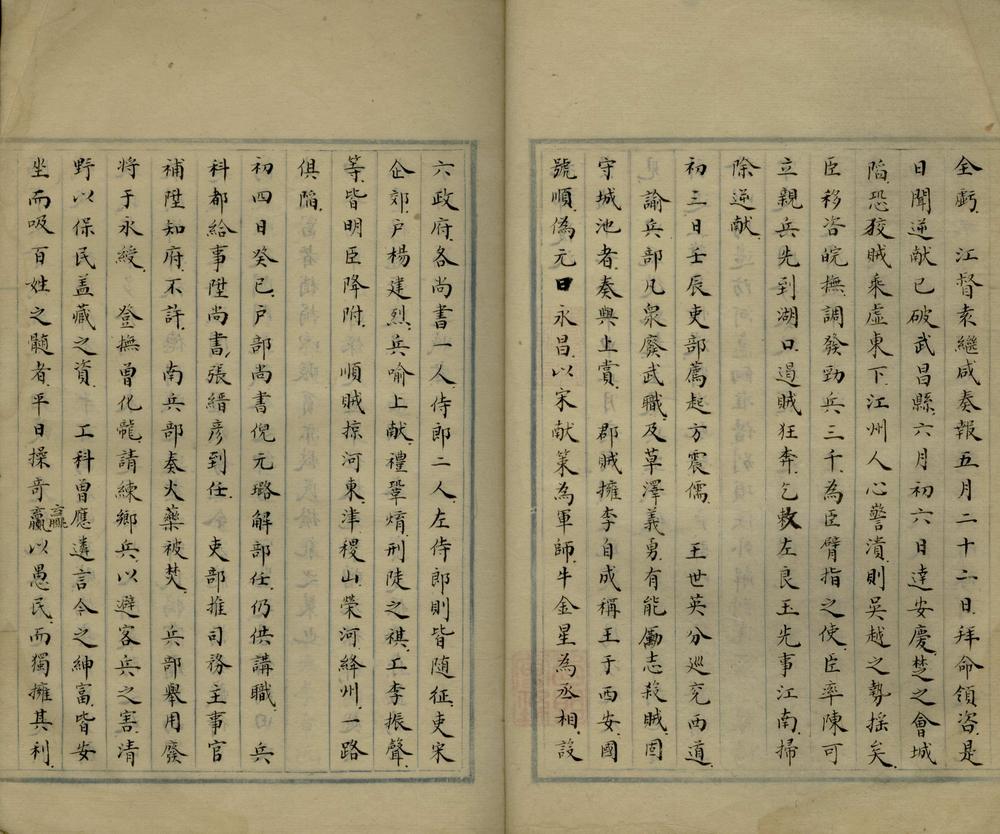 全虧　江督袁繼咸奏報五月二十二日拜命領咨是
日聞逆献已破武昌縣六月初六日達安慶楚之會城
陷恐狡賊乘虛東下江州人心警潰則吳越之勢揺矣
臣移咨皖撫調發勁兵三千為臣臂指之使臣率陳可
立親兵先到湖口遏賊狂奔乞敕左良玉先事江南掃
除逆献
初三日壬辰吏部薦起方震儒　王世英分巡兖西道
諭兵部凡衆廢武職及草澤義勇有能勵志殺賊固
守城池者奏與上賞　郡賊擁李自成稱王于西安國
號順偽元曰永昌以宋献策為軍師牛金星為丞相設
六政府各尚書一人侍郎二人左侍郎則皆随征吏宋
企郊户楊建烈兵喻上献禮鞏焴刑陡之祺工李振聲
等皆明臣降附　順賊掠河東津稷山榮河絳州一路
俱陷
初四日癸巳户部尚書倪元璐解部任仍供講職　兵
科都給事陞尚書張縉彦到任　吏部推司務主事官
補陞知府不許　南兵部奏火藥被焚　兵部舉用廢
將于永綬　登撫曾化龍請練鄉兵以避客兵之害清
野以保民盖藏之資　工科曾應遴言今之紳富皆安
坐而吸百姓之髓者平日操奇贏贏以愚民而獨擁其利